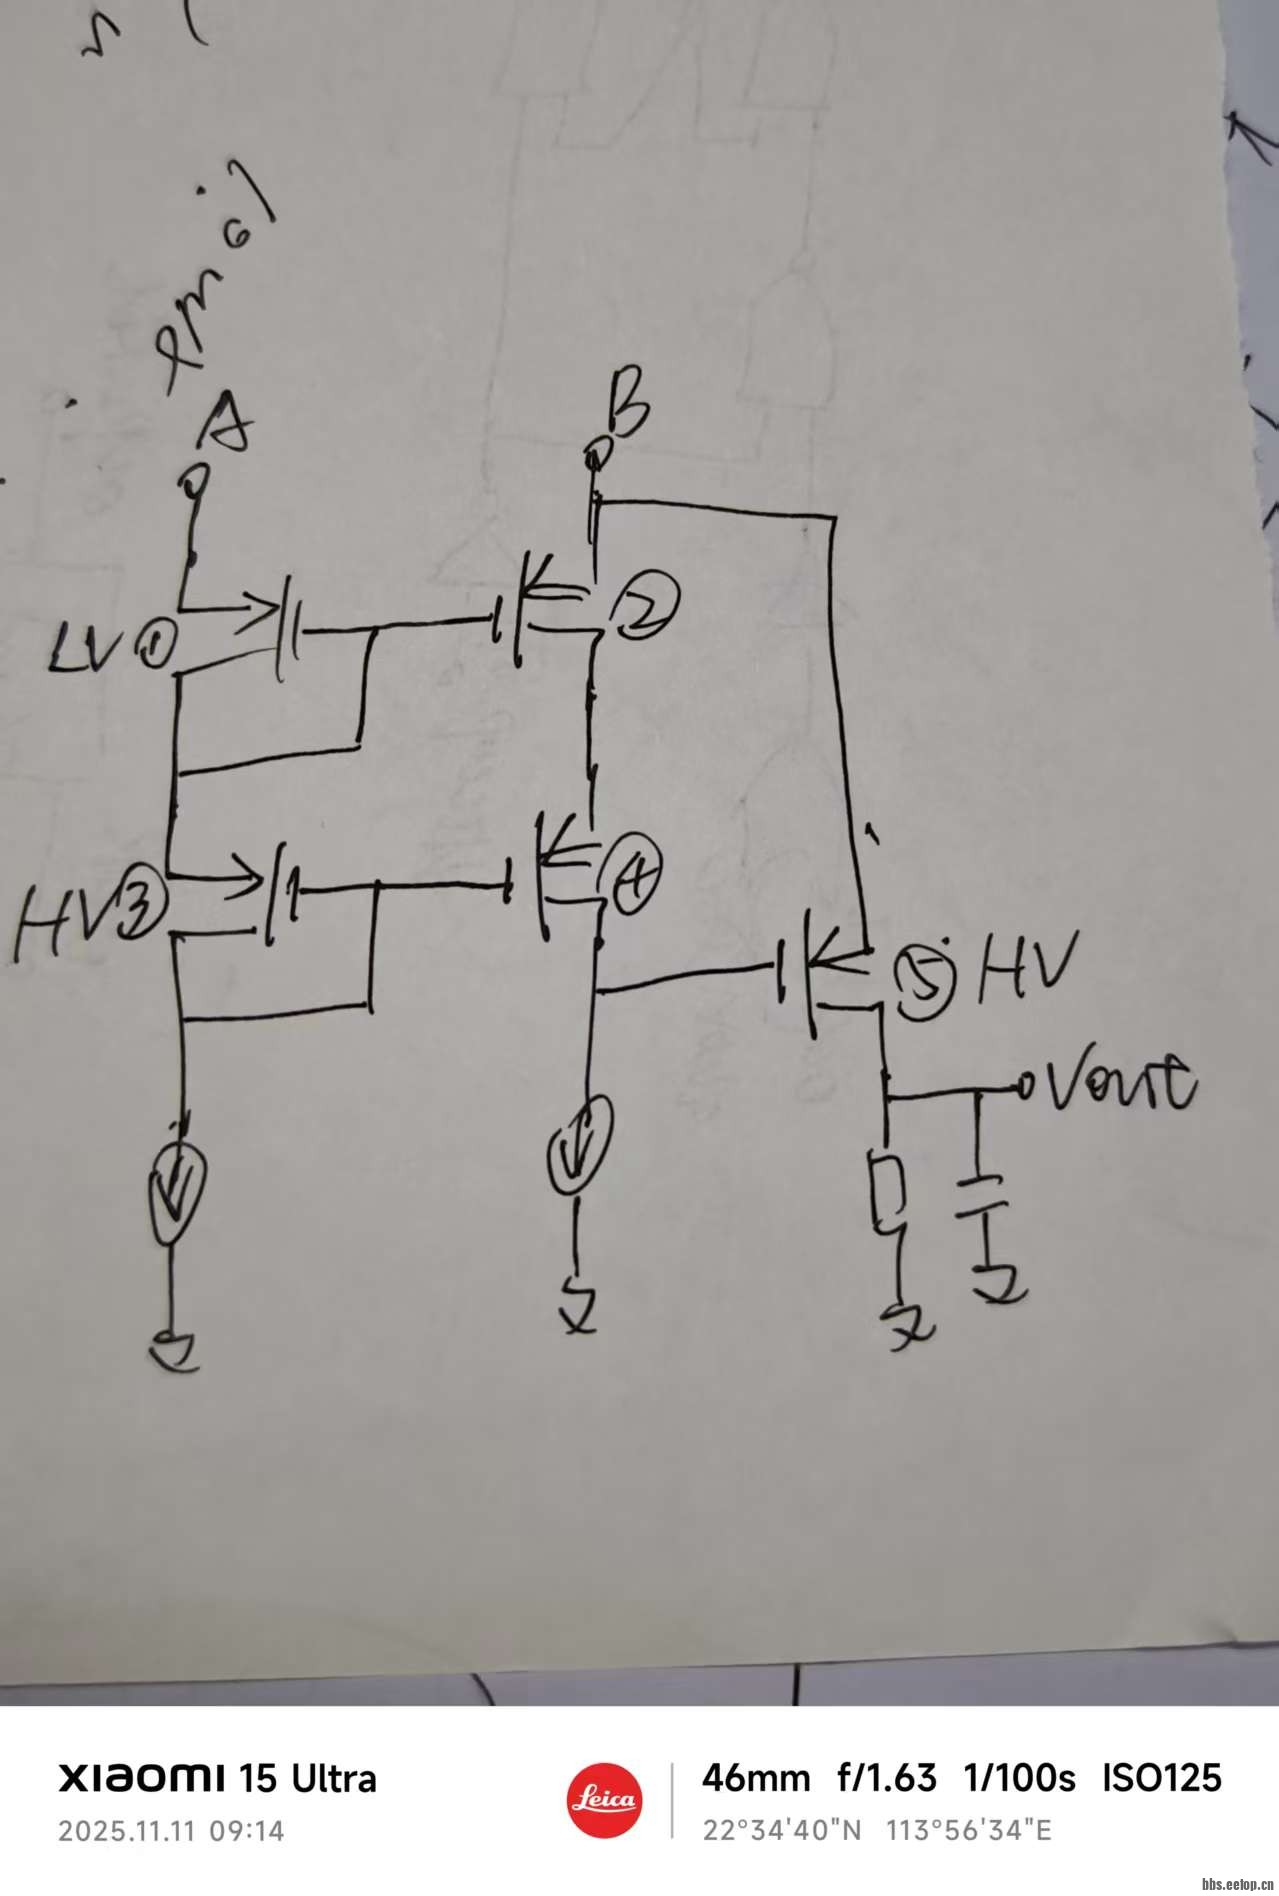 A
B
LV ①
②
HV ③
④
⑤ HV
Vout
XIAOMI 15 Ultra
2025.11.11 09:14
Leica
46mm f/1.63 1/100s ISO125
22°34'40"N 113°56'34"E
bbs.eetop.cn